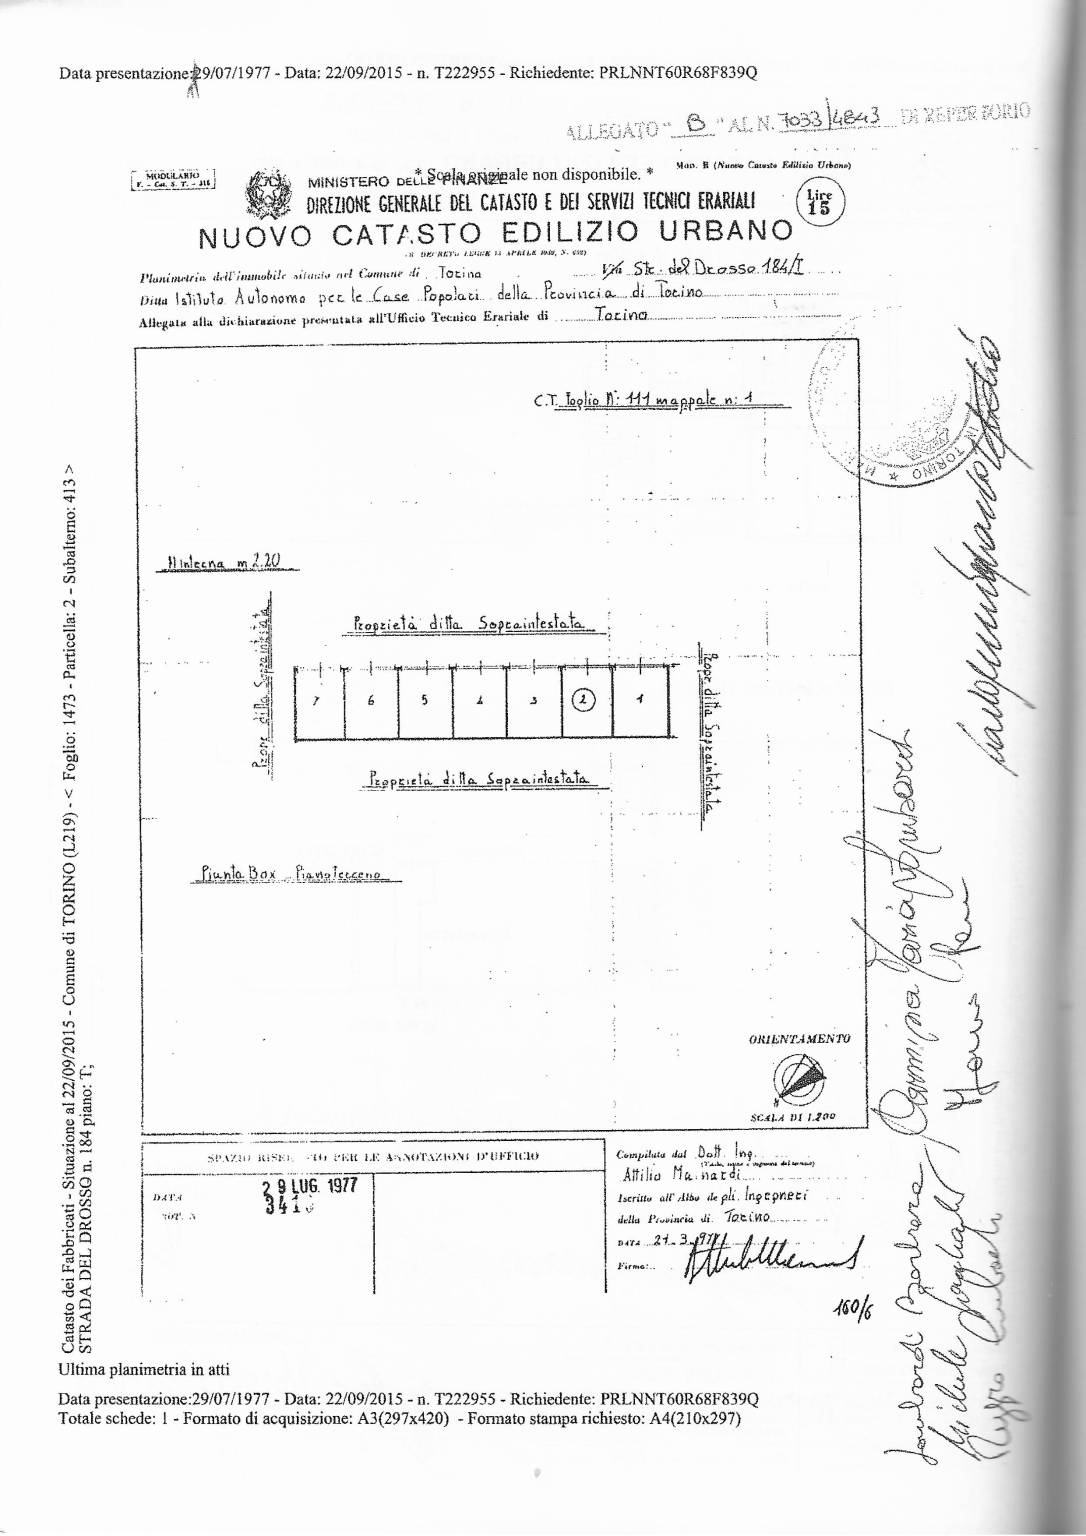 Data presentazione:29/07/1977 - Data: 22/09/2015 - n. T222955 - Richiedente: PRLNNT60R68F839Q
ALLEGATO " B " AL N. 7033/4843 DI REPERTORIO
MODULARIO
F. - Cat. S. T. - 315
Mod. B (Nuovo Catasto Edilizio Urbano)
MINISTERO DELLE FINANZE
* Scala originale non disponibile. *
DIREZIONE GENERALE DEL CATASTO E DEI SERVIZI TECNICI ERARIALI
Lire
15
NUOVO CATASTO EDILIZIO URBANO
Planimetria dell'immobile situato nel Comune di Torino Via Str. del Drosso 184/I
Ditta Istituto Autonomo per le Case Popolari della Provincia di Torino
Allegata alla dichiarazione presentata all'Ufficio Tecnico Erariale di Torino
C.T. Foglio N: 111 mappale n: 1
IN TORINO
H interna m 2.20
Proprietà ditta Sopraintestata
Propr ditta Sopraintestata
7 6 5 4 3 2 1
Propr ditta Sopraintestata
Proprietà ditta Sopraintestata
Pianta Box - Piano Terreno
ORIENTAMENTO
N
SCALA DI 1:200
SPAZIO RISERVATO PER LE ANNOTAZIONI D'UFFICIO
DATA
29 LUG. 1977
PROT. N
341
Compilata dal Dott. Ing.
Attilio Mainardi
Iscritto all'Albo degli Ingegneri
della Provincia di Torino
DATA 21-3-977
Firma:
160/6
Catasto dei Fabbricati - Situazione al 22/09/2015 - Comune di TORINO (L219) - < Foglio: 1473 - Particella: 2 - Subalterno: 413 >
STRADA DEL DROSSO n. 184 piano: T;
Ultima planimetria in atti
Data presentazione:29/07/1977 - Data: 22/09/2015 - n. T222955 - Richiedente: PRLNNT60R68F839Q
Totale schede: 1 - Formato di acquisizione: A3(297x420) - Formato stampa richiesto: A4(210x297)